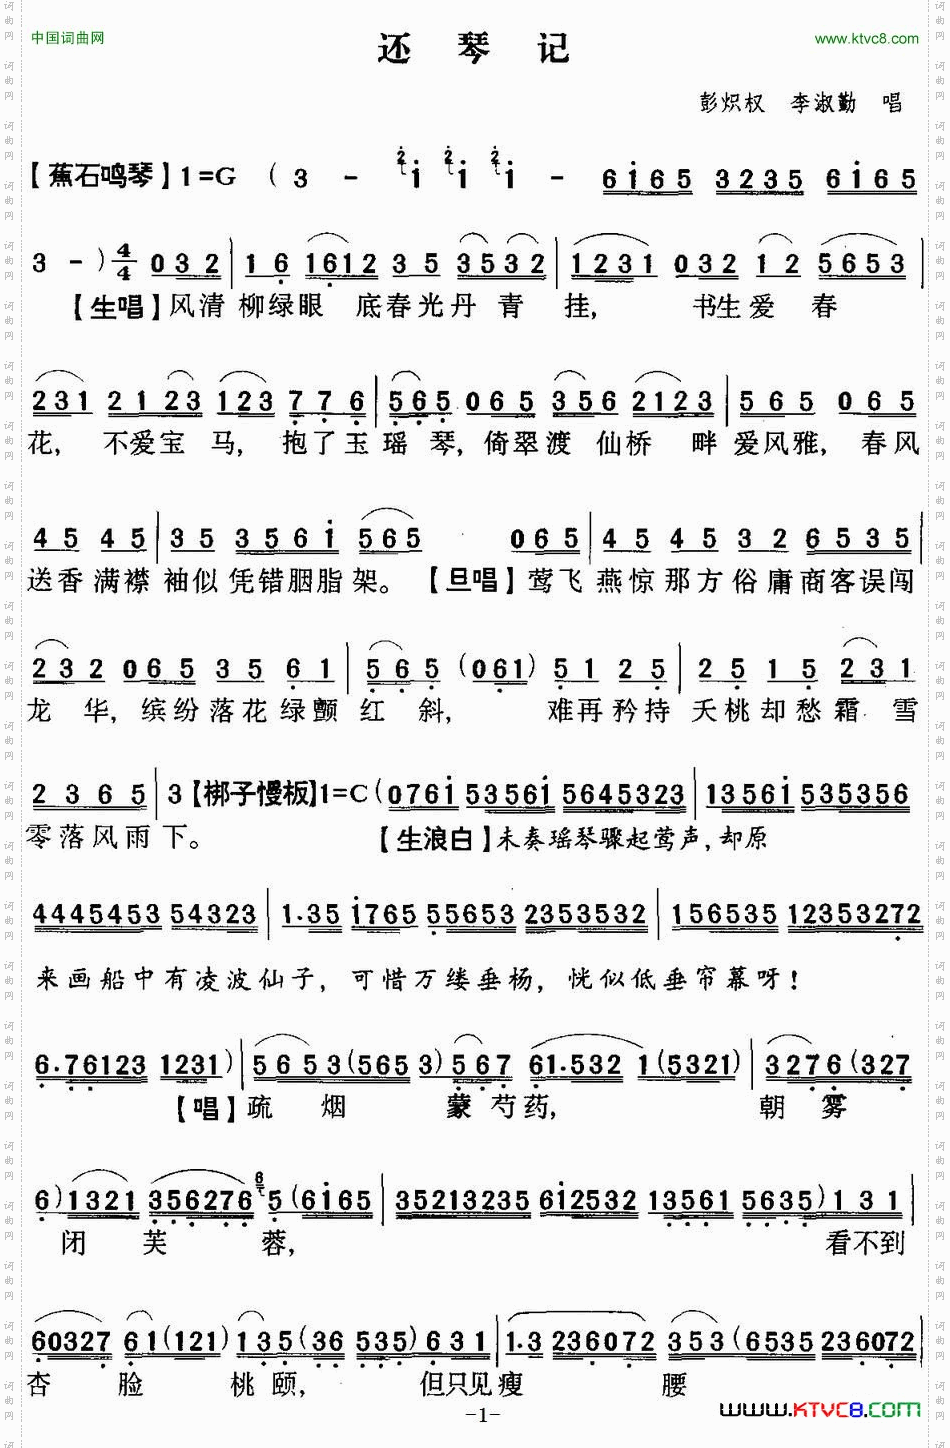 中国词曲网
还琴记
www.ktvc8.com
彭炽权 李淑勤 唱
【蕉石鸣琴】1=G ( 3 - i i i - 6i65 3235 6i65
3 - ) 4/4 032 | 16 1612 35 3532 | 1231 032 12 5653 |
【生唱】风清柳绿眼 底春光丹青挂, 书生爱春
231 2123 123 776 | 565 065 356 2123 | 565 065
花, 不爱宝马, 抱了玉瑶琴, 倚翠渡仙桥畔爱风雅, 春风
45 45 | 35 356i 565 065 | 45 45 32 6535 |
送香满襟袖似凭错胭脂架。【旦唱】莺飞燕惊那方俗庸商客误闯
232 065 35 61 | 565 (061) 51 25 | 25 15 231
龙华, 缤纷落花绿颤红斜, 难再矜持夭桃却愁霜雪
2365 | 3 【梆子慢板】1=C (076i 5356i 5645323 | 1356i 535356
零落风雨下。 【生浪白】未奏瑶琴骤起莺声, 却原
4445453 54323 | 1.35 i765 55653 2353532 | 156535 12353272
来画船中有凌波仙子, 可惜万缕垂杨, 恍似低垂帘幕呀!
6.76123 1231) | 5653(565 3) 567 61.532 1(5321) | 3276(327
【唱】疏烟蒙芍药, 朝雾
6) 1321 356276 5(6i65 | 35213235 6i2532 13561 5635) 131 |
闭芙蓉, 看不到
60327 61(121) 135(36 535) 631 | 1.3 236072 353(6535 236072
杏脸桃颐, 但只见瘦腰
-1-
www.KTVC8.COM